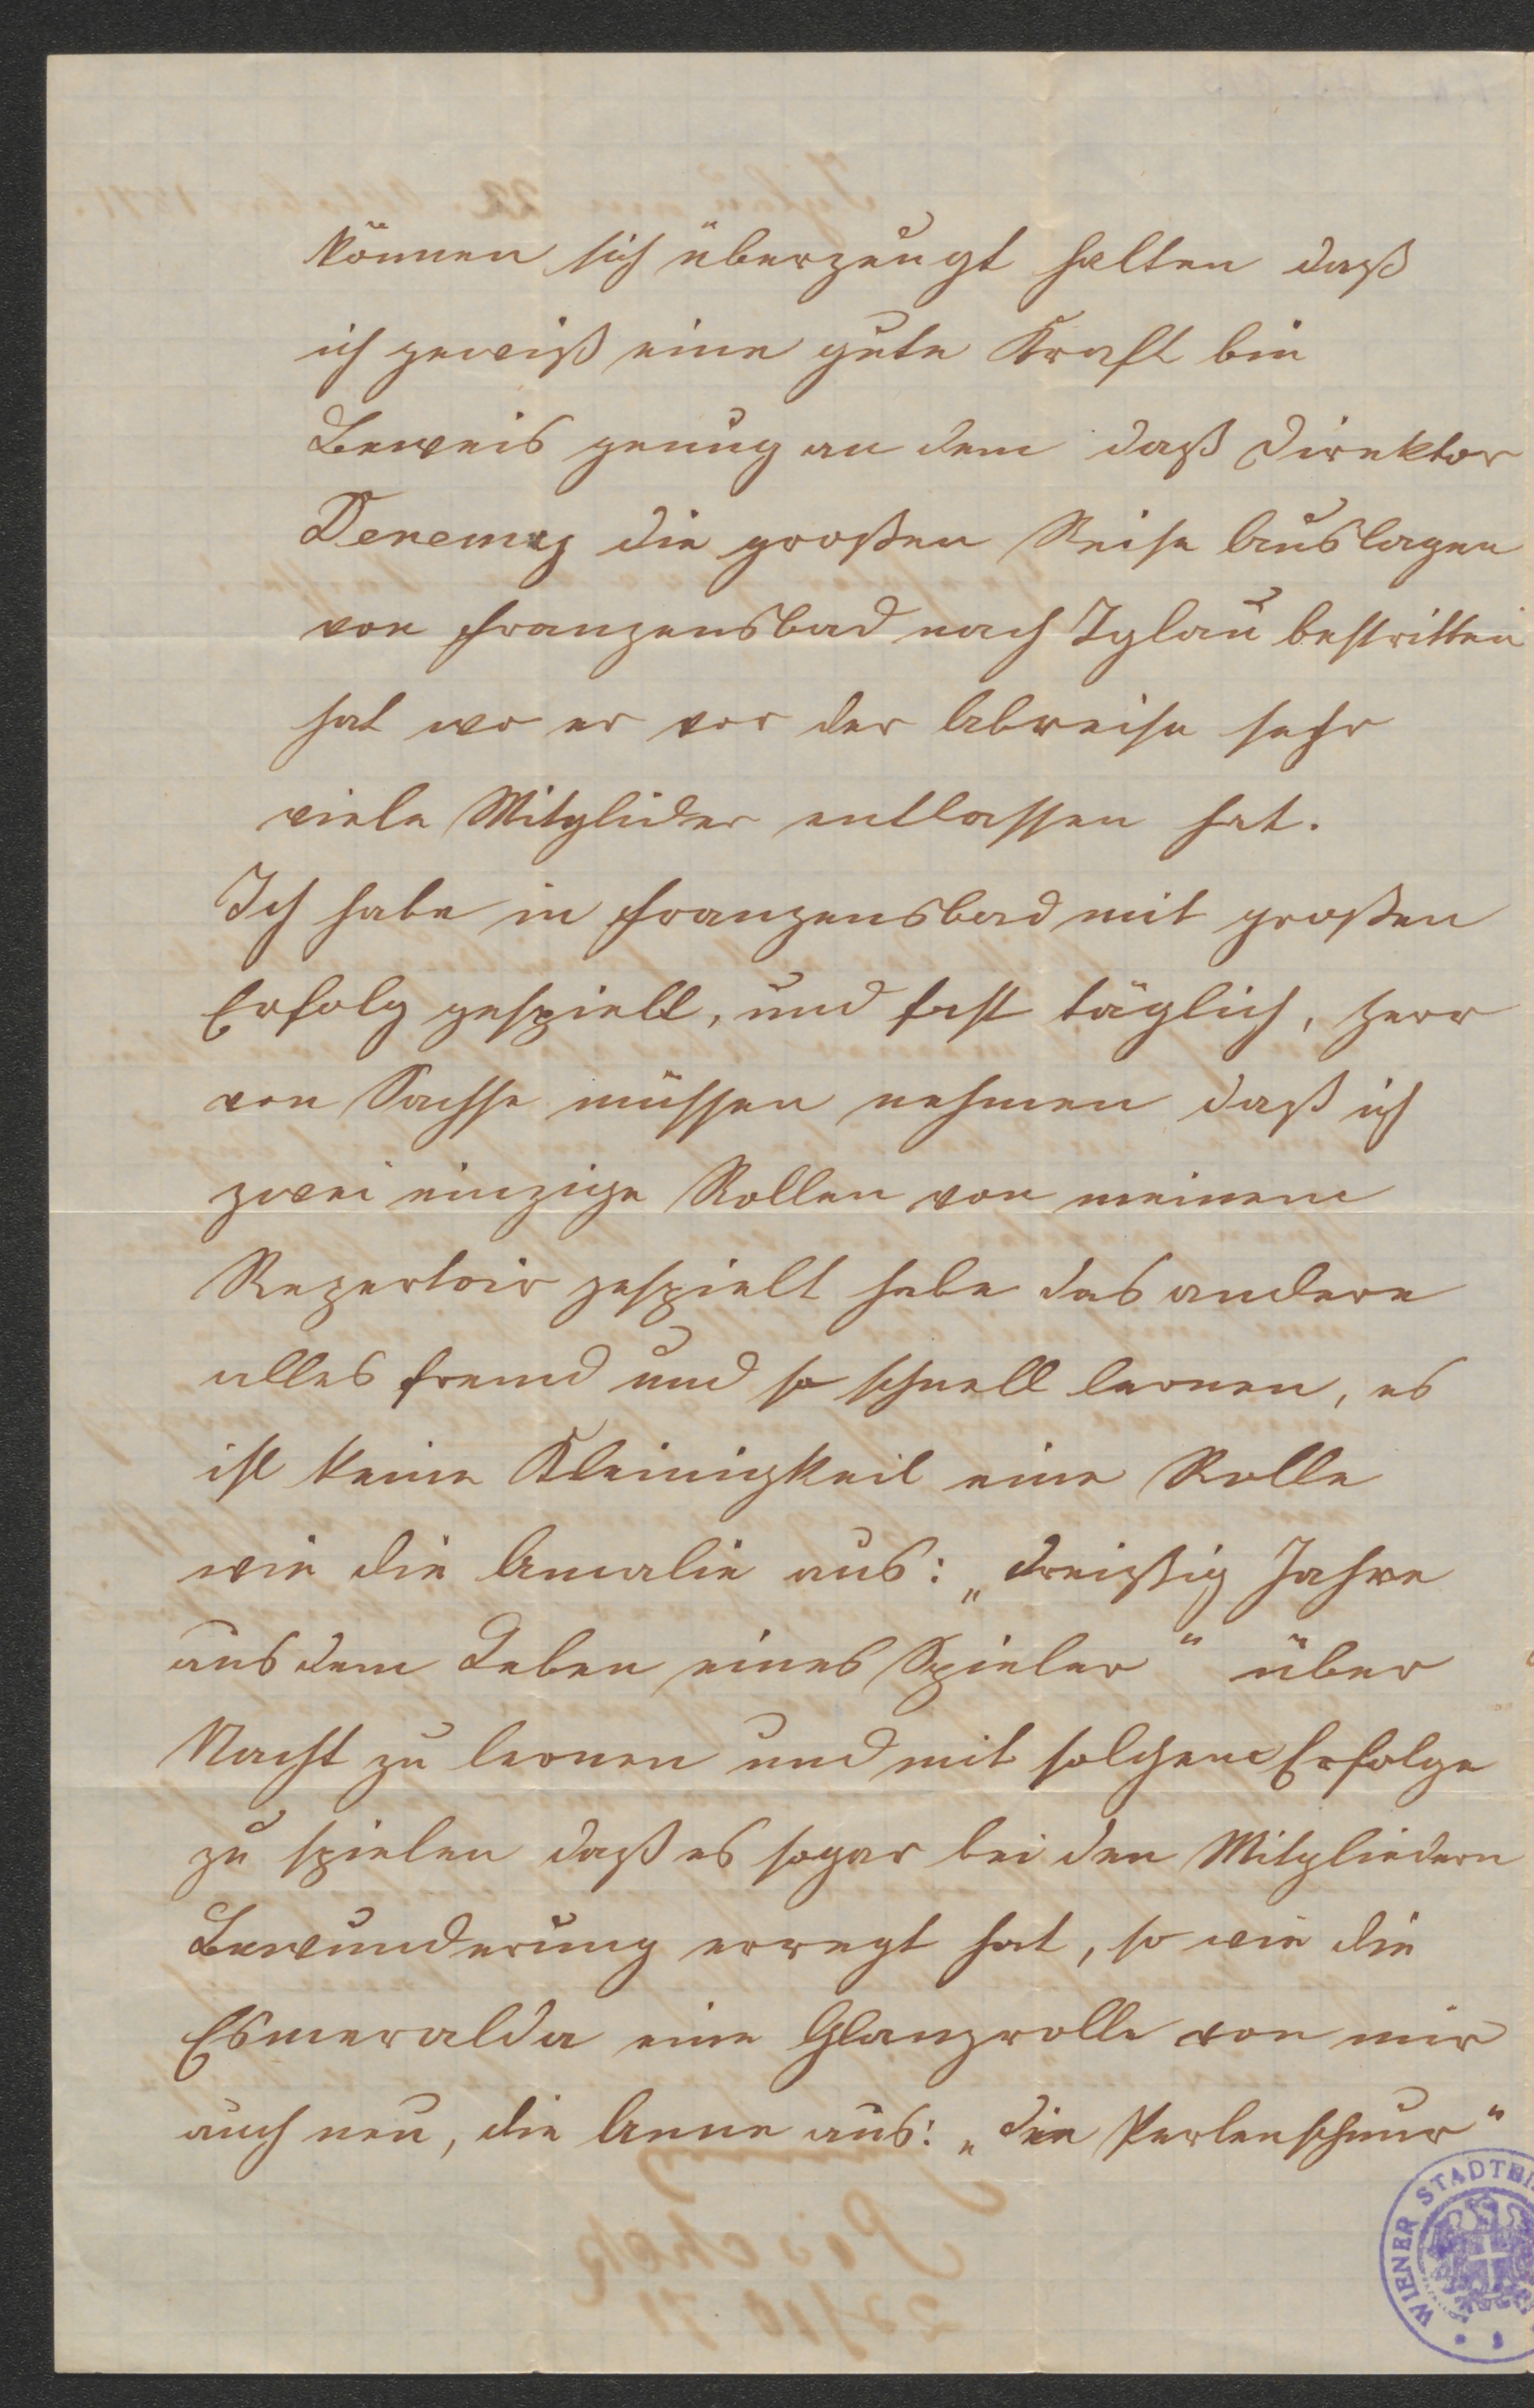 können sich überzeugt halten daß
ich gewiß eine gute Kraft bin
Beweis genug an dem daß Direktor
die großen Reise Auslagen
von Franzensbad nach Iglau bestritten
hat wo er vor der Abreise sehr
viele Mitglider entlassen hat.
Ich habe in Franzensbad mit großen
Erfolg gespielt, und fast täglich, Herr
von Sachse müssen nehmen daß ich
zwei einzige Rollen von meinem
Repertoir gespielt habe das andere
alles fremd und so schnell lernen, es
ist keine Kleinigkeit eine Rolle
wie die Amalie aus: „Dreißig Jahre
aus dem Leben eines Spieler“ über
Nacht zu lernen und mit solchem Erfolge
zu spielen daß es sogar bei den Mitgliedern
Bewunderung erregt hat, so wie die
Esmeralda eine Glanzrolle von mir
auch neu, die Anna aus: „die Perlenschnur“
WIENER STADTBI